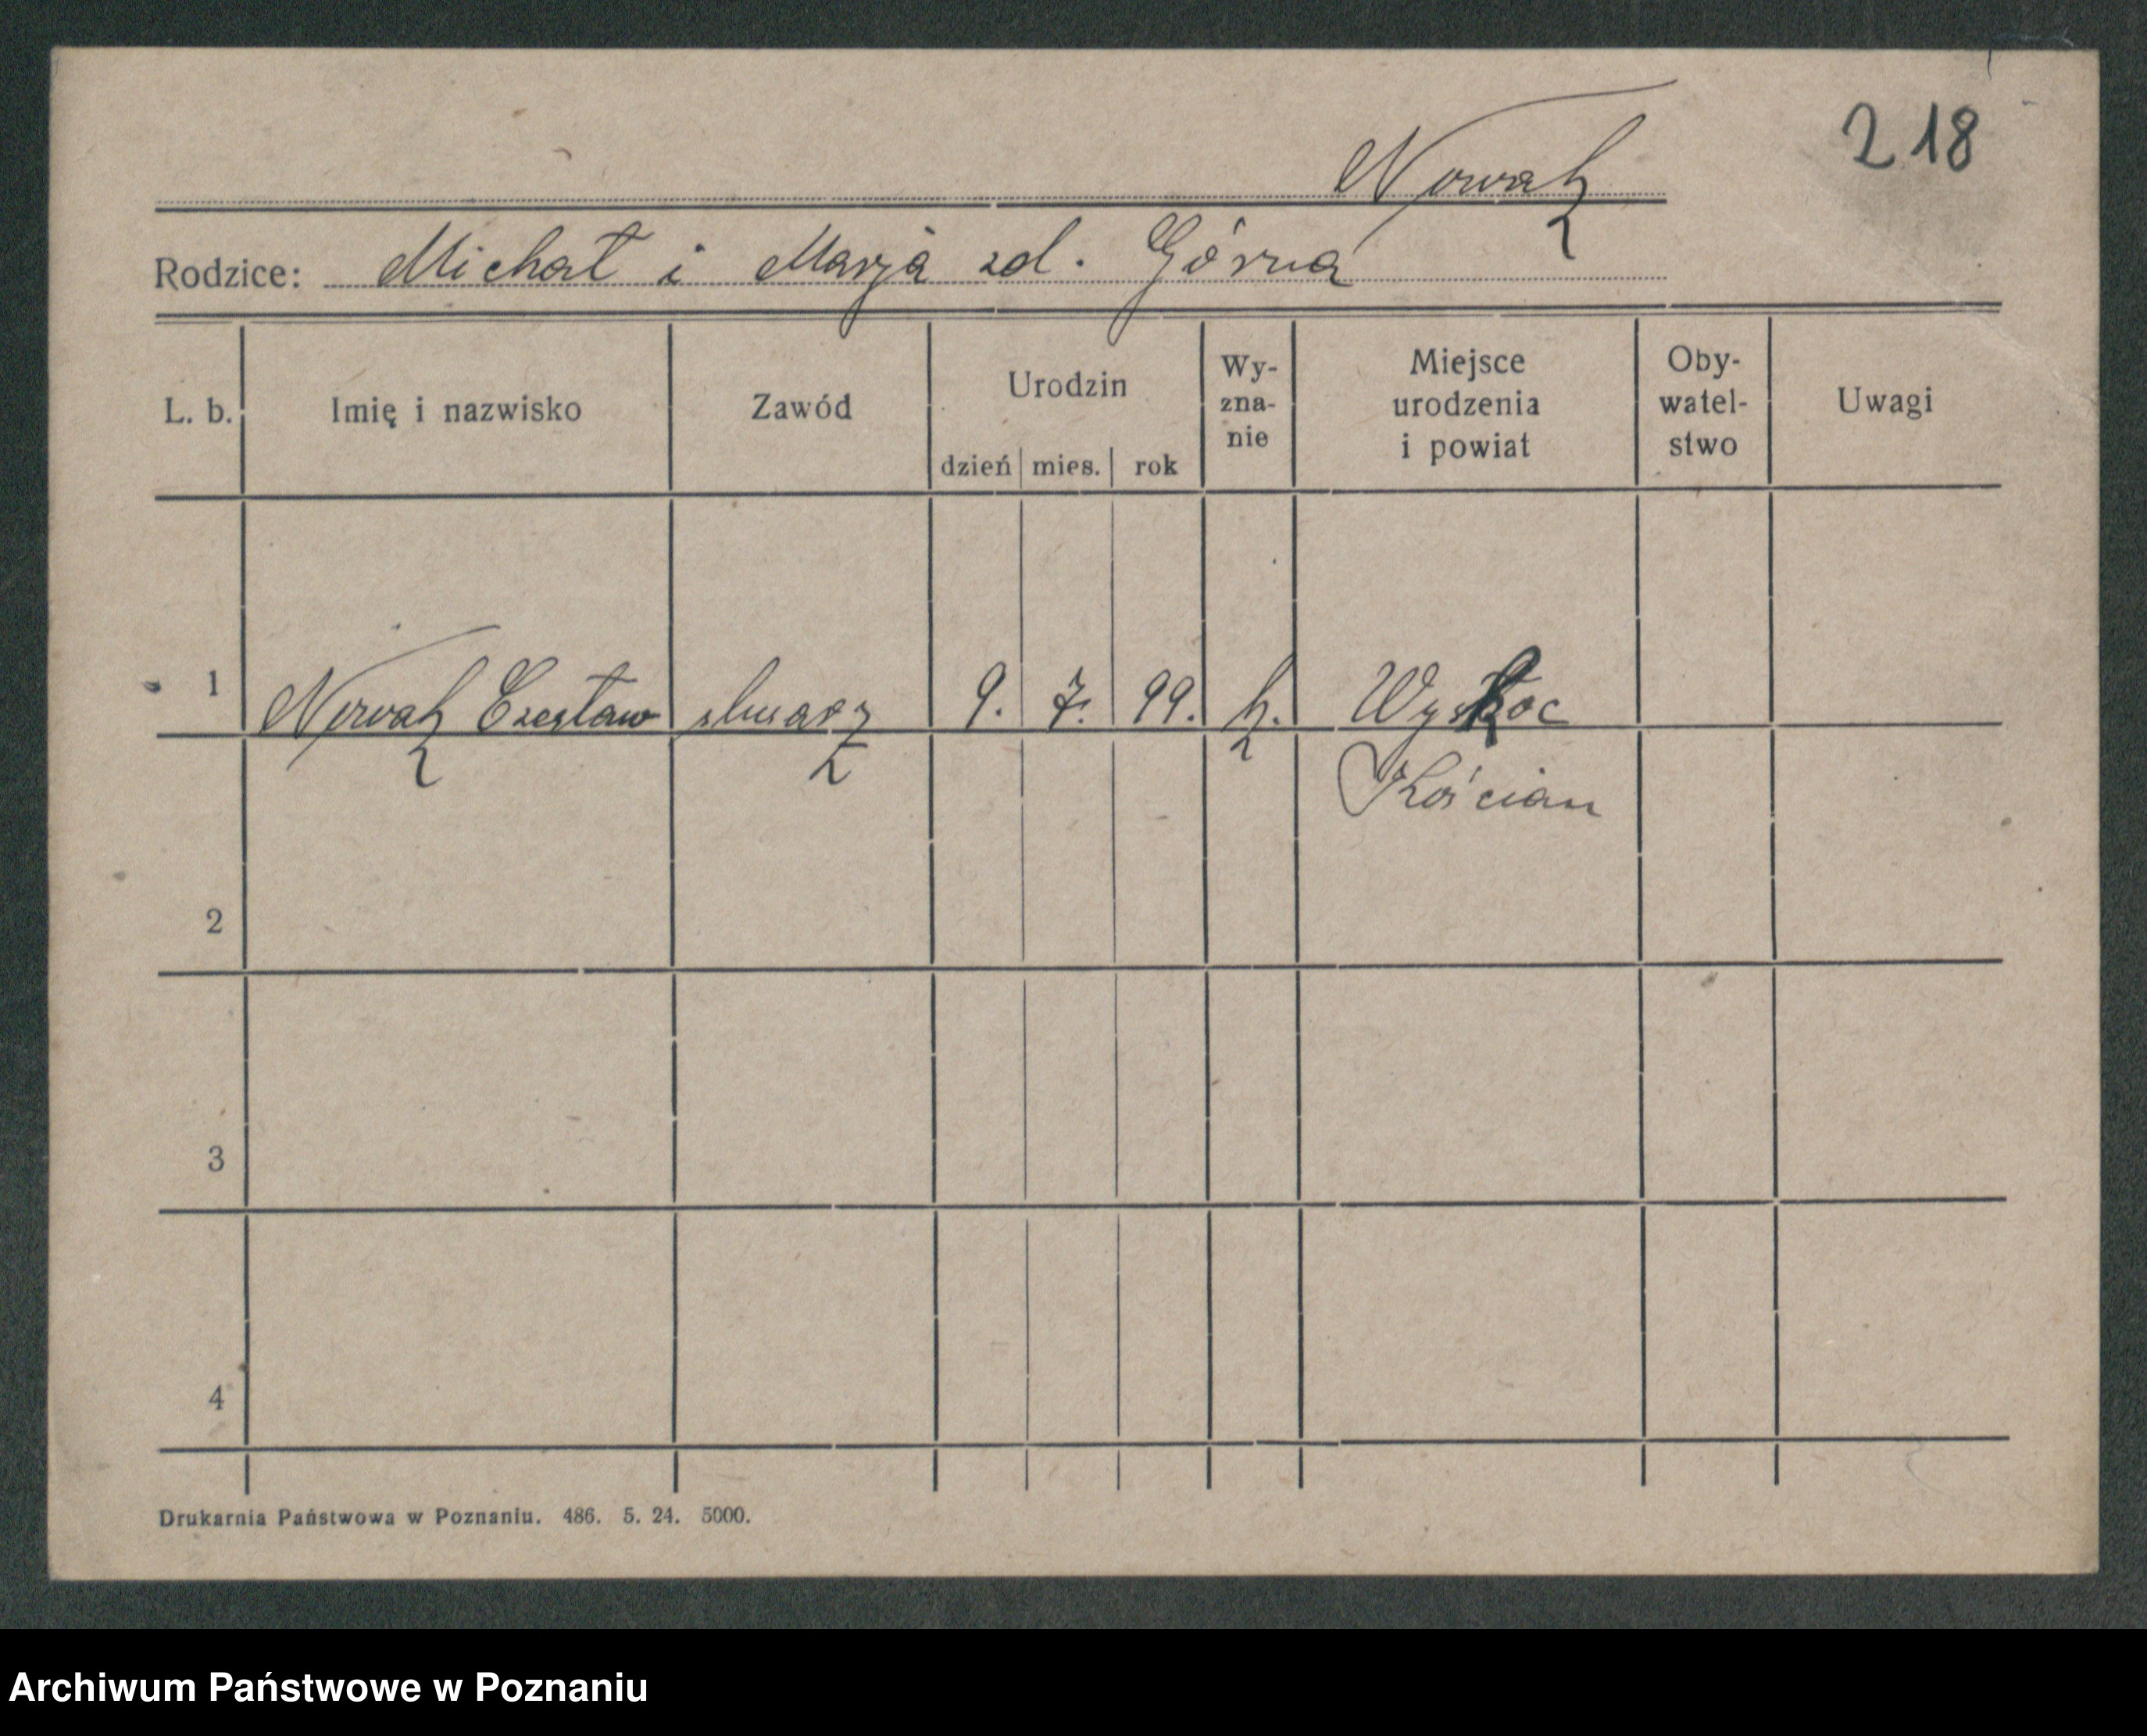 218
Nowak
Rodzice: Michał i Marja zd. Górna
L. b. Imię i nazwisko Zawód Urodzin dzień mies. rok Wy-zna-nie Miejsce urodzenia i powiat Oby-watel-stwo Uwagi
1 Nowak Czesław ślusarz 9. 7. 99. k. Wyskoc
Kościan
2
3
4
Drukarnia Państwowa w Poznaniu. 486. 5. 24. 5000.
Archiwum Państwowe w Poznaniu